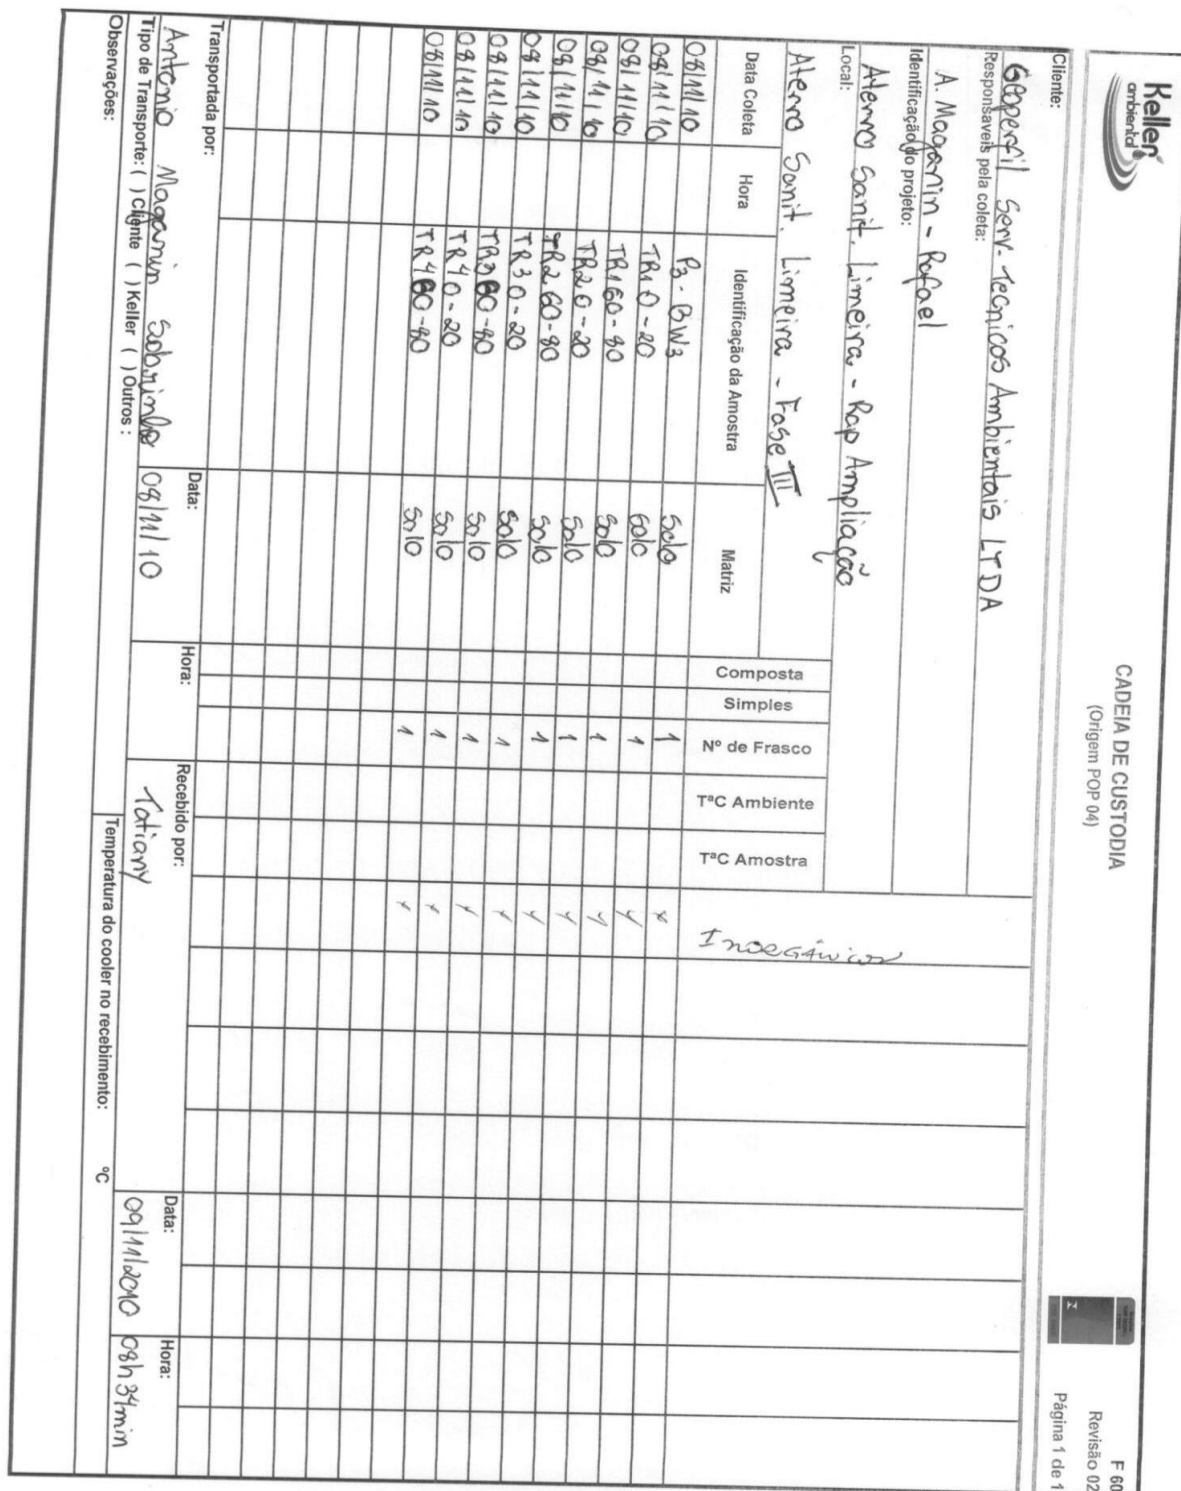 Keller
ambiental
CADEIA DE CUSTODIA
(Origem POP 04)
F 60
Revisão 02
Página 1 de 1
Cliente:
Geoperfil Serv. Tecnicos Ambientais LTDA
Responsaveis pela coleta:
A. Maganin - Rafael
Identificação do projeto:
Aterro Sanit. Limeira - Rap Ampliação
Local:
Aterro Sanit. Limeira - Fase III
Data Coleta Hora Identificação da Amostra Matriz Composta Simples Nº de Frasco TªC Ambiente TªC Amostra Inorgânicos
08/11/10 P3-BW3 Solo 1 x
08/11/10 TR1 0-20 Solo 1 x
08/11/10 TR1 60-80 Solo 1 x
08/11/10 TR2 0-20 Solo 1 x
08/11/10 TR2 60-80 Solo 1 x
08/11/10 TR3 0-20 Solo 1 x
08/11/10 TR3 60-80 Solo 1 x
08/11/10 TR4 0-20 Solo 1 x
08/11/10 TR4 60-80 Solo 1 x
Transportada por: Data: Hora: Recebido por: Data: Hora:
Antonio Maganin Sobrinho 08/11/10 Tatiany 09/11/2010 08h34min
Tipo de Transporte: ( ) Cliente ( ) Keller ( ) Outros : Temperatura do cooler no recebimento: ºC
Observações: